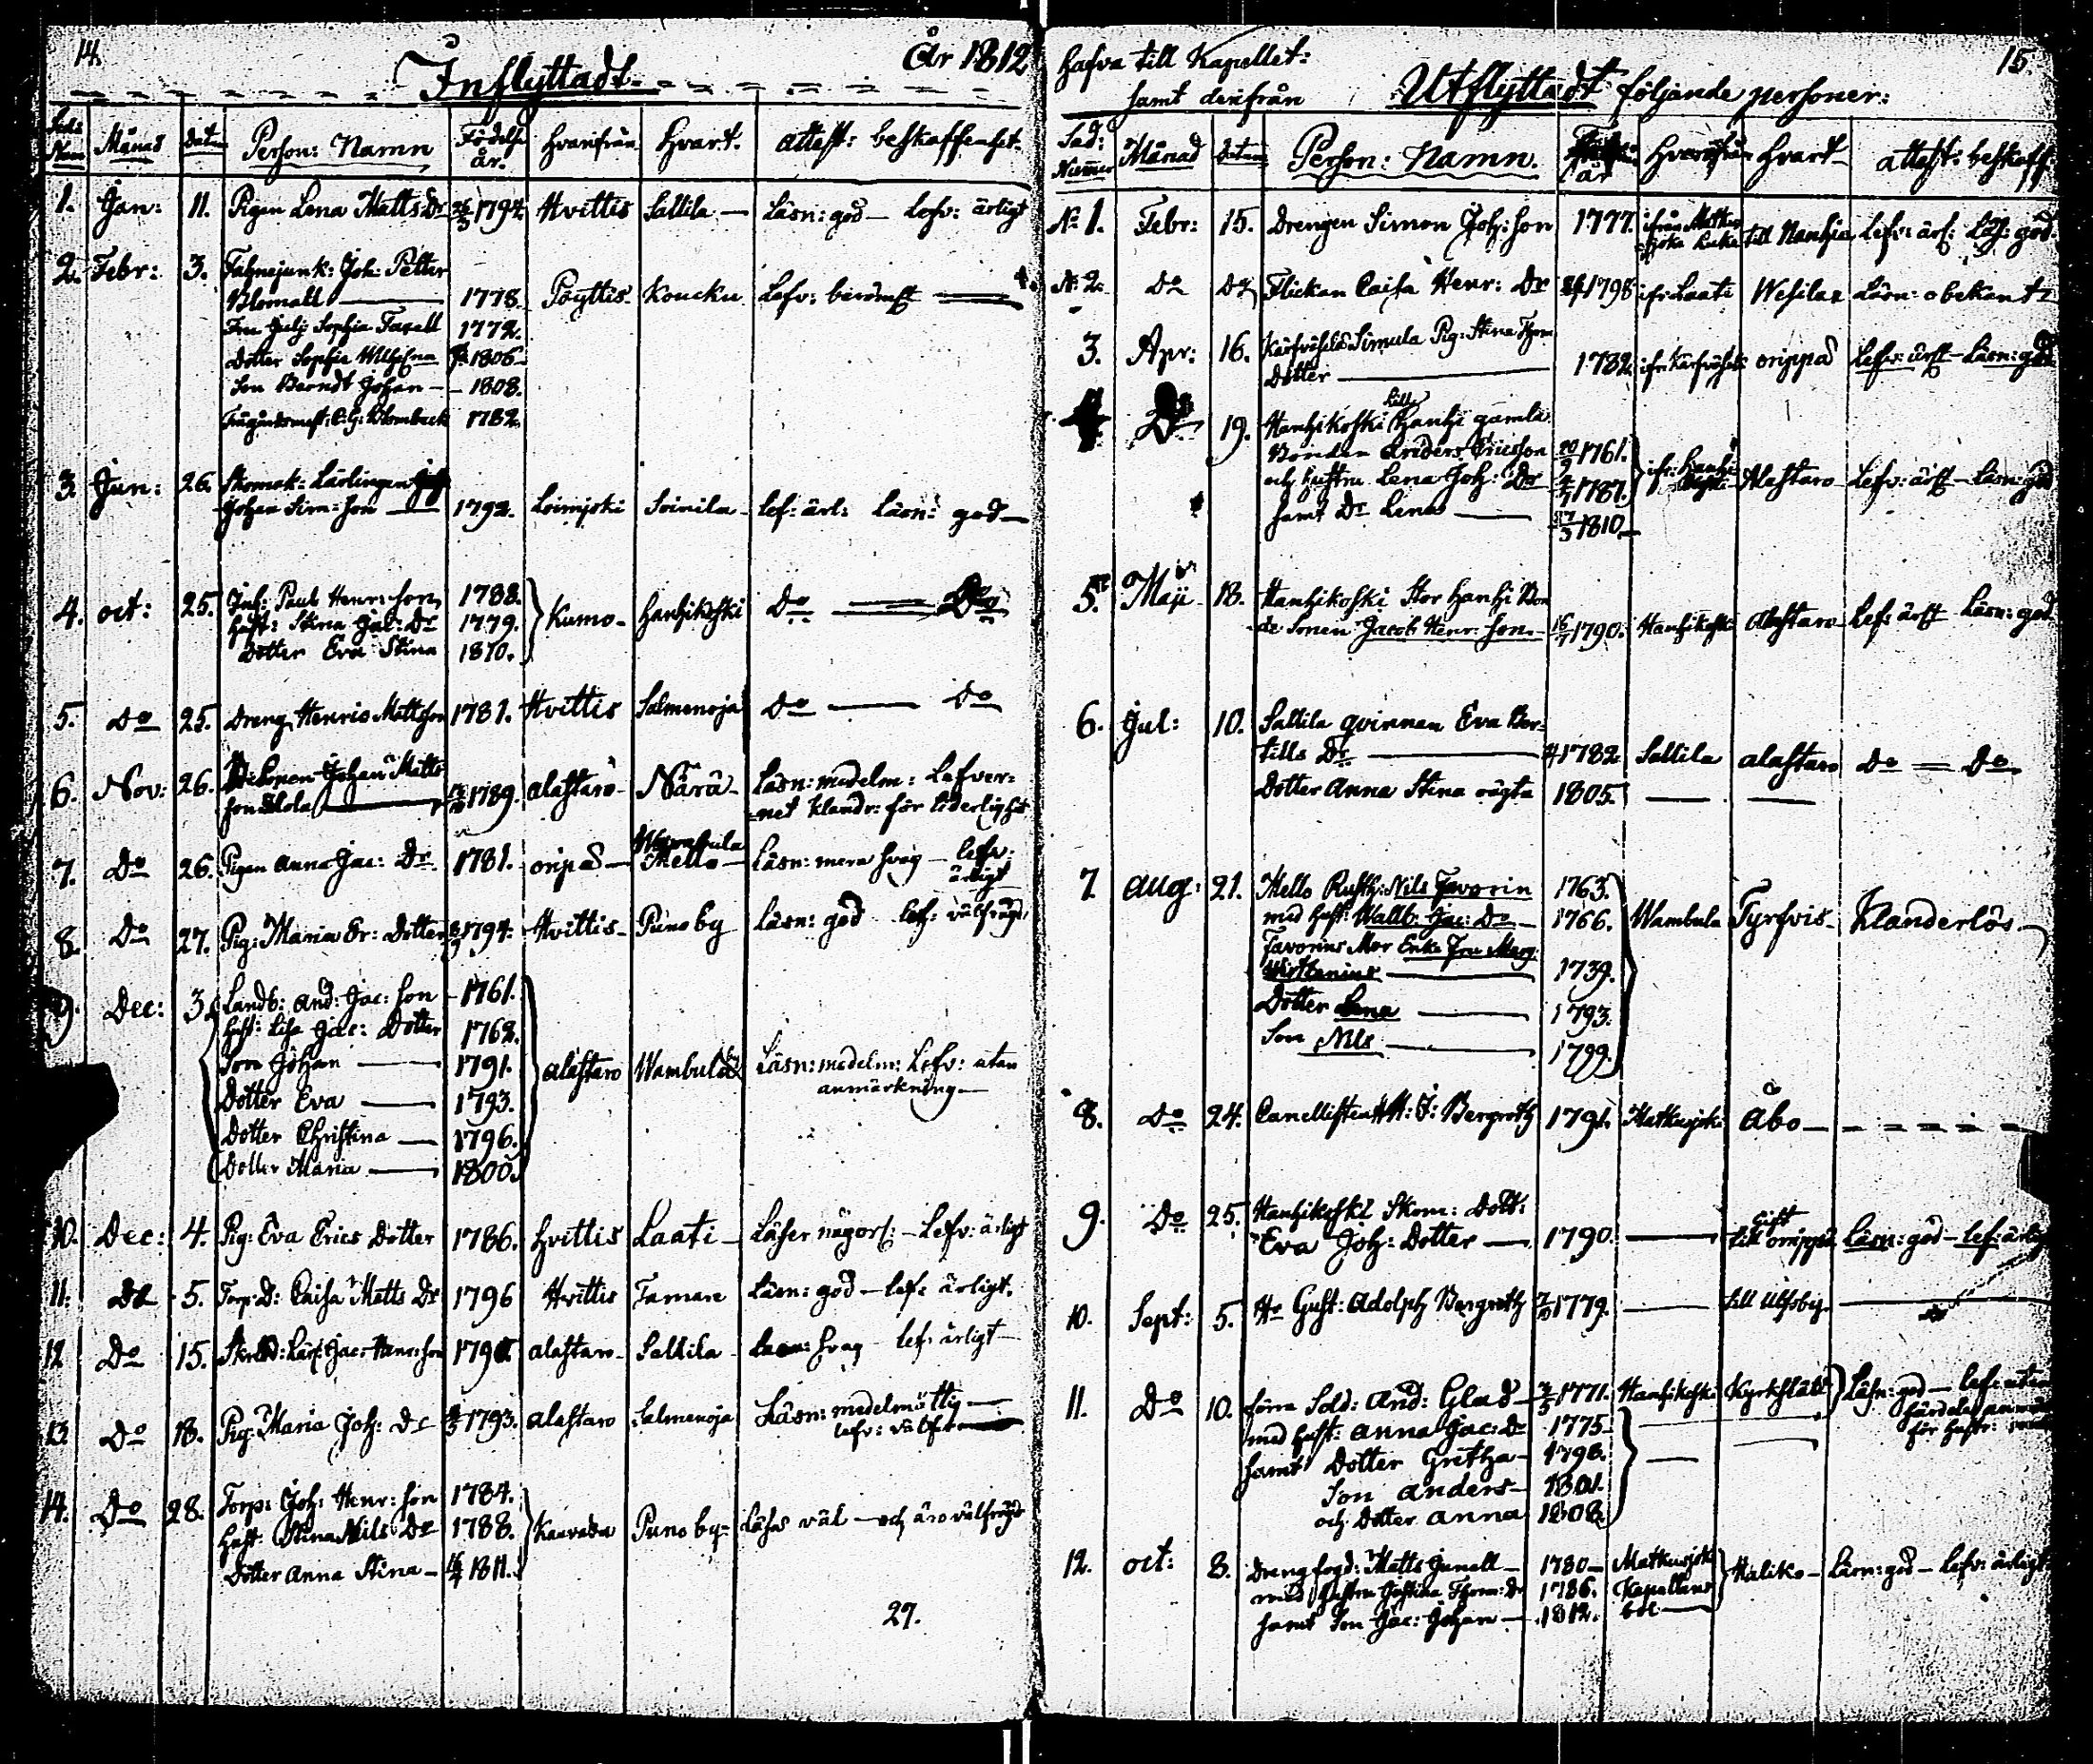 14.
Inflyttadt
År 1812
Månad Datum Person: Namn Födelse år. Hvarifrån Hvart. attest: beskaffenhet
1. Jan: 11. Pigan Lena Matts Dr 1794 Hvittis Sallila — Läsn: god — Lefv: ärligt
2. Febr: 3. Fahnejunk: Joh: Petter
Blomall — 1778. Pöyttis Koucku Lefv: berömst
Fru Julj Sophia 1772.
Dotter Sophia Wilhelmina 1806
Son Berndt Johan — 1808.
1782.
3. Jun: 26. Skomak: Lärlingen
Johan Sim: son — 1792. Loimjoki Soinila lef: ärl: läsn: god —
4. oct: 25. Inh: Paul Henr: son 1788. Kumo Hanhikoski Do — Do
Hust: Stina Jac: Dr 1779.
Dotter Eva Stina 1810.
5. Do 25. Dreng Henric Mattsson 1781. Hvittis Salmenoja Do — Do
6. Nov: 26. Johan Matts
son 1789. alastaro Närä Läsn: medelm: Lefver-
net klandr: för liderlighet
7. Do 26. Pigan Anna Jac: Dr 1781. oripää Mello Läsn: mera svag — lefv:
ärligt
8. Do 27. Pig: Maria Er: Dotter 1794. Hvittis Punoby läsn: god lef: välfrägd
9. Dec: 3. Landb: And: Jac: son 1761.
Hust: Lisa Jac: Dotter 1762.
Son Johan — 1791. alastaro Wambula Läsn: medelm: Lefv: utan
anmärkning —
Dotter Eva — 1793.
Dotter Christina — 1796.
Dotter Maria — 1800.
10. Dec: 4. Pig: Eva Erics Dotter 1786. Hvittis Laati Läser någorl: — Lefv: ärligt
11. Do 5. Torp: D: Caisa Matts Dr 1796 Hvittis Tamare Läsn: god — lef: ärligt.
12 Do 15. Jac: Henr: son alastaro Sallila Läsn: svag lef: ärligt
13. Do 18. Pig: Maria Joh: Dr 1793. alastaro Salmenoja Läsn: medelmåttig —
lefv:
14. Do 28. Torp: Joh: Henr: son 1784.
Hust: Stina Nils Dr 1788. Punoby Läsa väl — och äro välfrägd
Dotter Anna Stina — 1811.
27.
hafva till Kapellet:
samt derifrån Utflyttadt följande personer:
15.
Månad Datum Person: Namn. år Hvarifrån Hvart attest: beskaff:
No 1. Febr: 15. Drengen Simon Joh: son 1777. till Lefv: ärl: läsn: god.
No 2. Do Do Flickan Caisa Henr: Dr 1798 ifr: Laati Wesilax Läsn: obekant
3. Apr: 16. Simula Pig: Stina Thom
Dotter — 1782. oripää Lefv: ärlt — Läsn: god
4. Do 19. Hanhikoski Lill Hanhi gamla
Bonden Anders Ericsson 1761.
och hustru Lena Joh: Dr 1787. ifr: Hanhi Alastaro Lefv: ärlt — läsn: god
samt Dr Lena — 1810.
5. Maji 18. Hanhikoski Stor Hanhi Bon
de Sonen Jacob Henr: son — 1790. Hanhikoski Alastaro Lef: ärlt Läsn: god
6. Jul: 10. Sallila qvinnan Eva Ber-
tills Dr — 1782 Sallila alastaro Do — Do
Dotter Anna Stina oägta 1805.
7. aug: 21. Mello Rusth: Nils Favorin 1763.
med hust: Wallb: Jac: Dr — 1766. Wambula Tyrfvis Klanderlös
Favorins Mor Enka Fru Marg:
1739.
Dotter Lena — 1793.
Son Nils — 1799.
8. Do 24. Bergroth 1791. Matkusjoki Åbo —
9. Do 25. Hanhikoski Skom: Dott:
Eva Joh: Dotter — 1790. — gift
till oripää Läsn: god — lef: ärligt
10. Sept: 5. Hr Gust: Adolph Bergroth 1779. — till Ulfsby —
11. Do 10. förra Sold: And: Glad — 1771. Hanhikoski Kyrkslätt Läsn: god — lef: utan
med hust: Anna Jac: Dr 1775
samt Dotter Gretha — 1798.
Son Anders — 1801.
och Dotter Anna 1808.
12. oct: 8. Drengfogd: Matts Junell — 1780 — Matkusjoki Haliko — Läsn: god — Lefv: ärligt
med hustru Justina Thom: Dr 1786. Kapellans
samt Son Jac: Johan — 1812. bol —